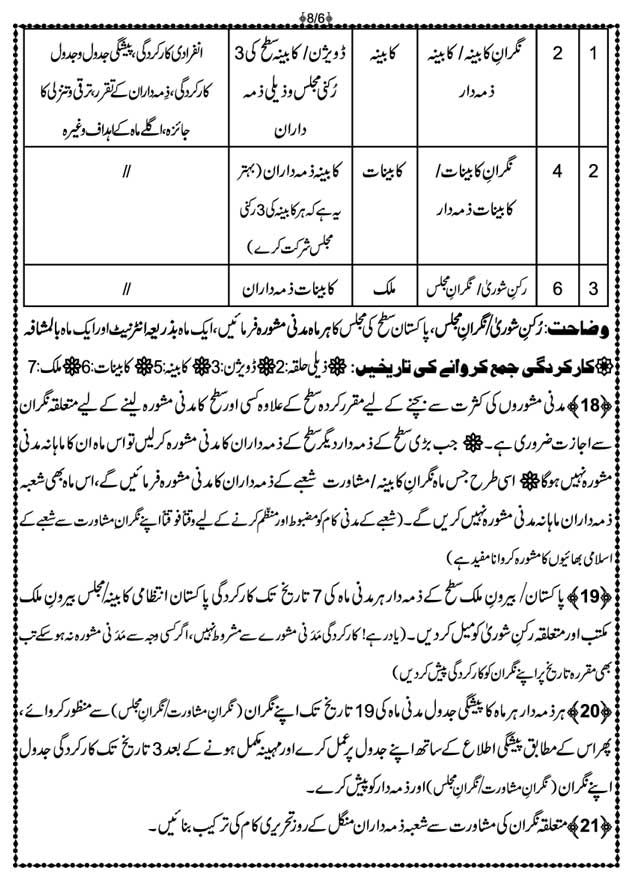 8/6
1 2 نگرانِ کابینہ / کابینہ ذمہ دار کابینہ ڈویژن / کابینہ سطح کی 3 رُکنی مجلس و ذیلی ذمہ داران انفرادی کارکردگی، پیشگی جدول و جدول کارکردگی، ذمہ داران کے تقرر، ترقی و تنزلی کا جائزہ، اگلے ماہ کے اہداف وغیرہ
2 4 نگرانِ کابینات / کابینات ذمہ دار کابینات کابینہ ذمہ داران (بہتر یہ ہے کہ ہر کابینہ کی 3 رکنی مجلس شرکت کرے) //
3 6 رکنِ شوریٰ / نگرانِ مجلس ملک کابینات ذمہ داران //
وضاحت: رُکنِ شوریٰ/ نگرانِ مجلس، پاکستان سطح کی مجلس کا ہر ماہ مدنی مشورہ فرمائیں، ایک ماہ بذریعہ انٹرنیٹ اور ایک ماہ بالمشافہ
کارکردگی جمع کروانے کی تاریخیں: ذیلی حلقہ:2 ڈویژن:3 کابینہ:5 کابینات:6 ملک:7
﴿18﴾ مدنی مشوروں کی کثرت سے بچنے کے لیے مقرر کردہ سطح کے علاوہ کسی اور سطح کا مدنی مشورہ لینے کے لیے متعلقہ نگران
سے اجازت ضروری ہے۔ جب بڑی سطح کے ذمہ دار دیگر سطح کے ذمہ داران کا مدنی مشورہ کر لیں تو اس ماہ ان کا ماہانہ مدنی
مشورہ نہیں ہوگا اسی طرح جس ماہ نگرانِ کابینہ / مشاورت شعبے کے ذمہ داران کا مدنی مشورہ فرمائیں گے، اس ماہ بھی شعبہ
ذمہ داران ماہانہ مدنی مشورہ نہیں کریں گے۔ (شعبے کے مدنی کام کو مضبوط اور منظم کرنے کے لیے وقتاً فوقتاً اپنے نگرانِ مشاورت سے شعبے کے
اسلامی بھائیوں کا مشورہ کروانا مفید ہے)
﴿19﴾ پاکستان/ بیرونِ ملک سطح کے ذمہ دار ہر مدنی ماہ کی 7 تاریخ تک کارکردگی پاکستان انتظامی کابینہ/ مجلس بیرونِ ملک
مکتب اور متعلقہ رکنِ شوریٰ کو میل کر دیں۔ (یاد رہے! کارکردگی مَدَنی مشورے سے مشروط نہیں، اگر کسی وجہ سے مَدَنی مشورہ نہ ہو سکے تب
بھی مقررہ تاریخ پر اپنے نگران کو کارکردگی پیش کر دیں)
﴿20﴾ ہر ذمہ دار ہر ماہ کا پیشگی جدول مدنی ماہ کی 19 تاریخ تک اپنے نگران (نگرانِ مشاورت/نگرانِ مجلس) سے منظور کروائے،
پھر اس کے مطابق پیشگی اطلاع کے ساتھ اپنے جدول پر عمل کرے اور مہینہ مکمل ہونے کے بعد 3 تاریخ تک کارکردگی جدول
اپنے نگران (نگرانِ مشاورت/نگرانِ مجلس) اور ذمہ دار کو پیش کرے۔
﴿21﴾ متعلقہ نگران کی مشاورت سے شعبہ ذمہ داران منگل کے روز تحریری کام کی ترکیب بنائیں۔